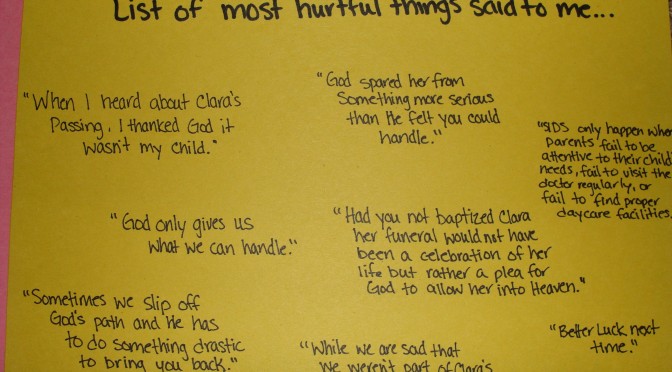 List of most hurtful things said to me...
"When I heard about Clara's
Passing, I thanked God it
wasn't my child."
"God spared her from
something more serious
than He felt you could
handle."
"SIDS only happen when
parents fail to be
attentive to their child
needs, fail to visit the
doctor regularly, or
fail to find proper
daycare facilities.
"God only gives us
what we can handle."
"Had you not baptized Clara
her funeral would not have
been a celebration of her
life but rather a plea for
God to allow her into Heaven."
"Sometimes we slip off
God's path and He has
to do something drastic
to bring you back."
"While we are sad that
we weren't part of Clara's
"Better Luck next
time."